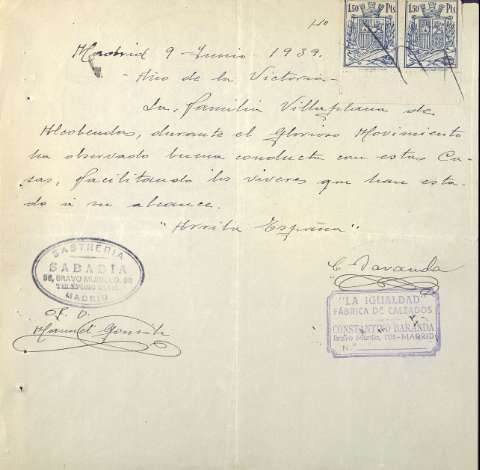 1.50 Pts 1.50 Pts
Madrid 9 Junio 1939.
- Año de la Victoria -
La familia Villaplana de
Alcobendas, durante el Glorioso Movimiento
ha observado buena conducta con estas Ca-
sas, facilitando los viveres que han esta-
do a su alcance.
"Arriba España"
SASTRERIA
SABADIA
BRAVO MURILLO,
TELEFONO
MADRID
P. O.
Manuel
C. Baranda
"LA IGUALDAD"
FÁBRICA DE CALZADOS
CONSTANTINO BARANDA
Bravo Murillo, MADRID
N.º